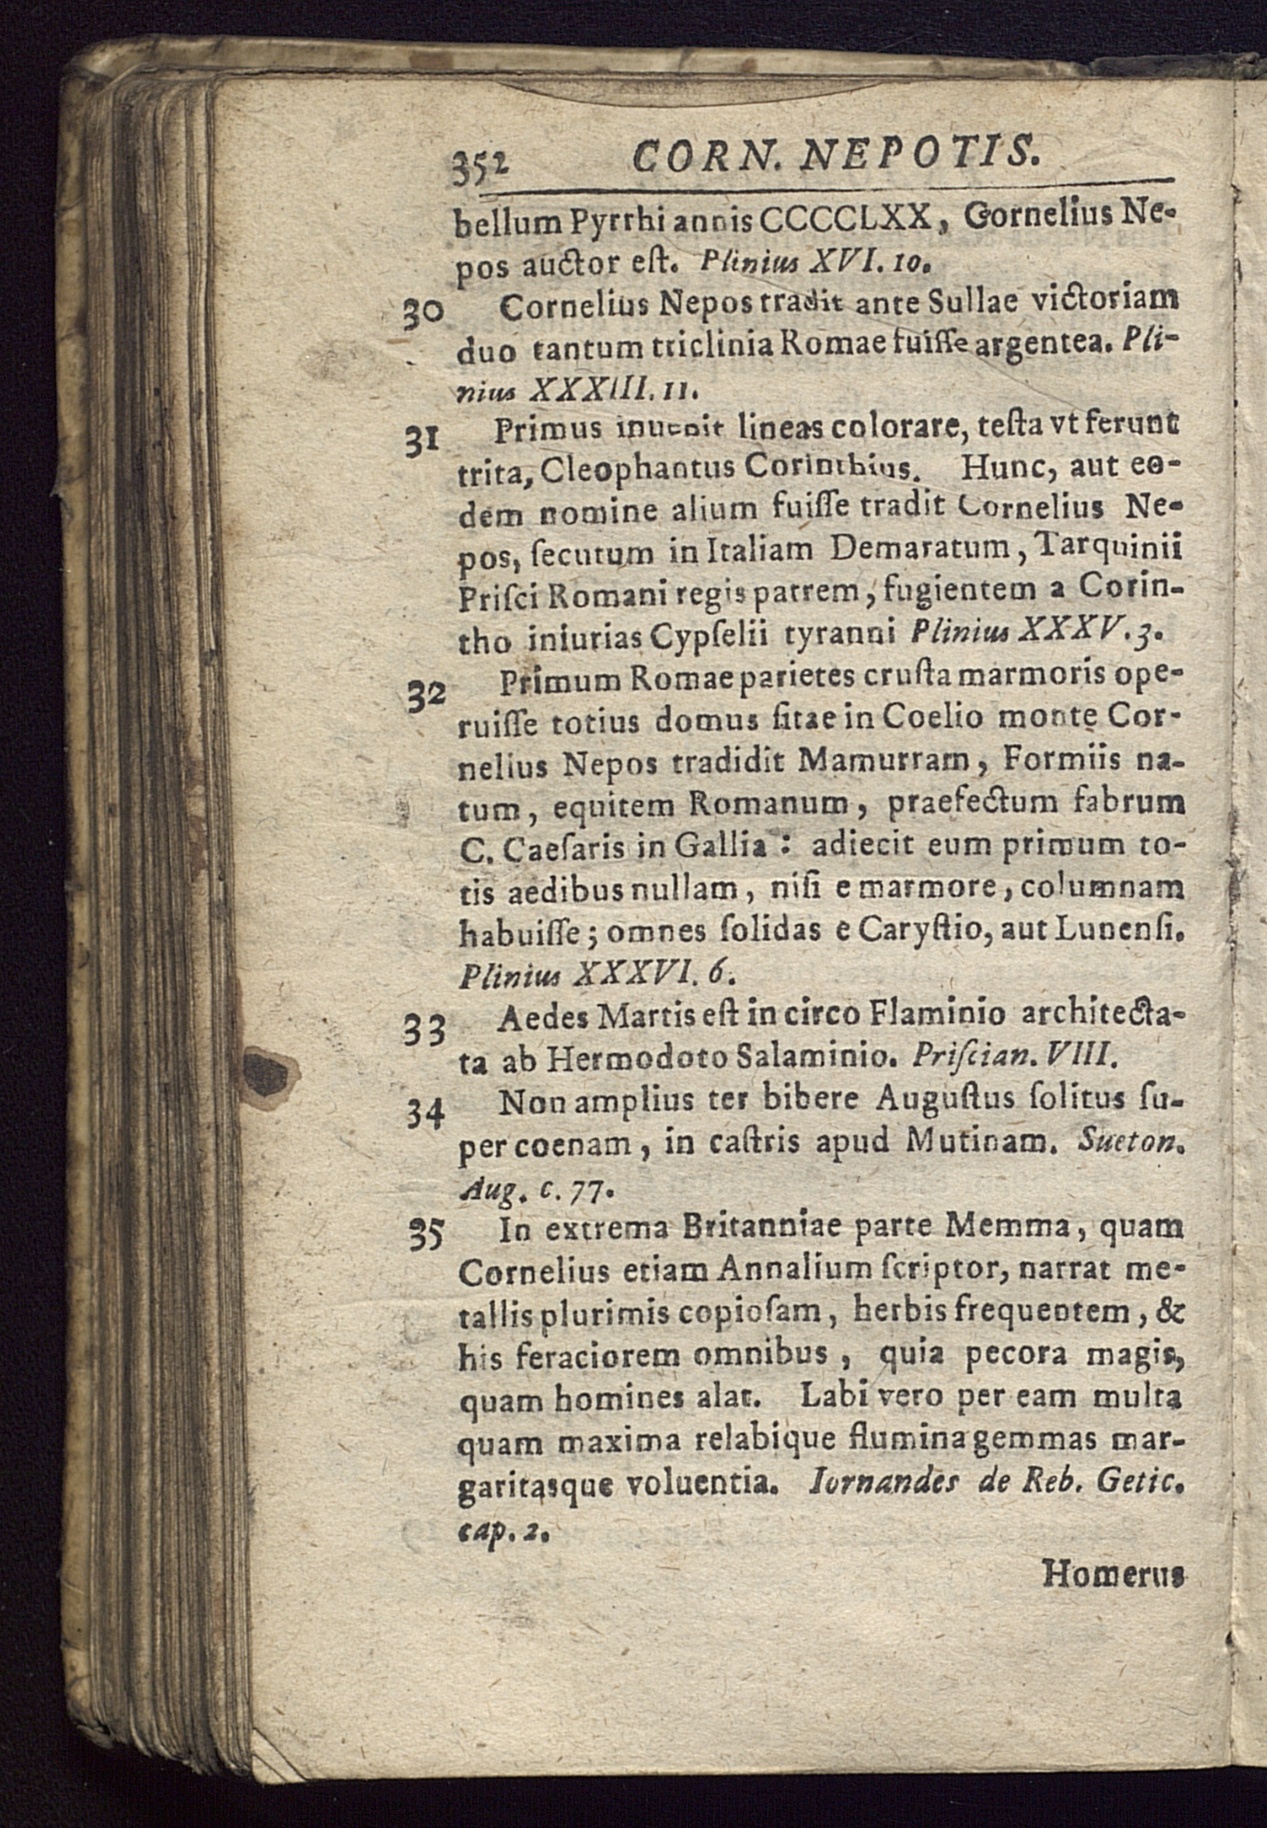 352 CORN. NEPOTIS.
bellum Pyrrhi annis CCCCCLXX, Cornelius Ne-
pos auctor eſt. Plinius XVI. 10.
30 Cornelius Nepos tradit ante Sullae victoriam
duo tantum triclinia Romae fuiſſe argentea. Pli-
nius XXXIII. 11.
31 Primus inuenit lineas colorare, teſta vt ferunt
trita, Cleophantus Corinthius. Hunc, aut eo-
dem nomine alium fuiſſe tradit Cornelius Ne-
pos, ſecutum in Italiam Demaratum, Tarquinii
Priſci Romani regis patrem, fugientem a Corin-
tho iniurias Cypſelii tyranni Plinius XXXV. 3.
32 Primum Romae parietes cruſta marmoris ope-
ruiſſe totius domus ſitae in Coelio monte Cor-
nelius Nepos tradidit Mamurram, Formiis na-
tum, equitem Romanum, praefectum fabrum
C. Caeſaris in Gallia: adiecit eum primum to-
tis aedibus nullam, niſi e marmore, columnam
habuiſſe; omnes ſolidas e Caryſtio, aut Lunenſi.
Plinius XXXVI. 6.
33 Aedes Martis eſt in circo Flaminio architecta-
ta ab Hermodoto Salaminio. Priſcian. VIII.
34 Non amplius ter bibere Auguſtus ſolitus ſu-
per coenam, in caſtris apud Mutinam. Sueton.
Aug. c. 77.
35 In extrema Britanniae parte Memma, quam
Cornelius etiam Annalium ſcriptor, narrat me-
tallis plurimis copioſam, herbis frequentem, &
his feraciorem omnibus, quia pecora magis,
quam homines alat. Labi vero per eam multa
quam maxima relabique flumina gemmas mar-
garitasque voluentia. Iornandes de Reb. Getic.
cap. 2.
Homerus